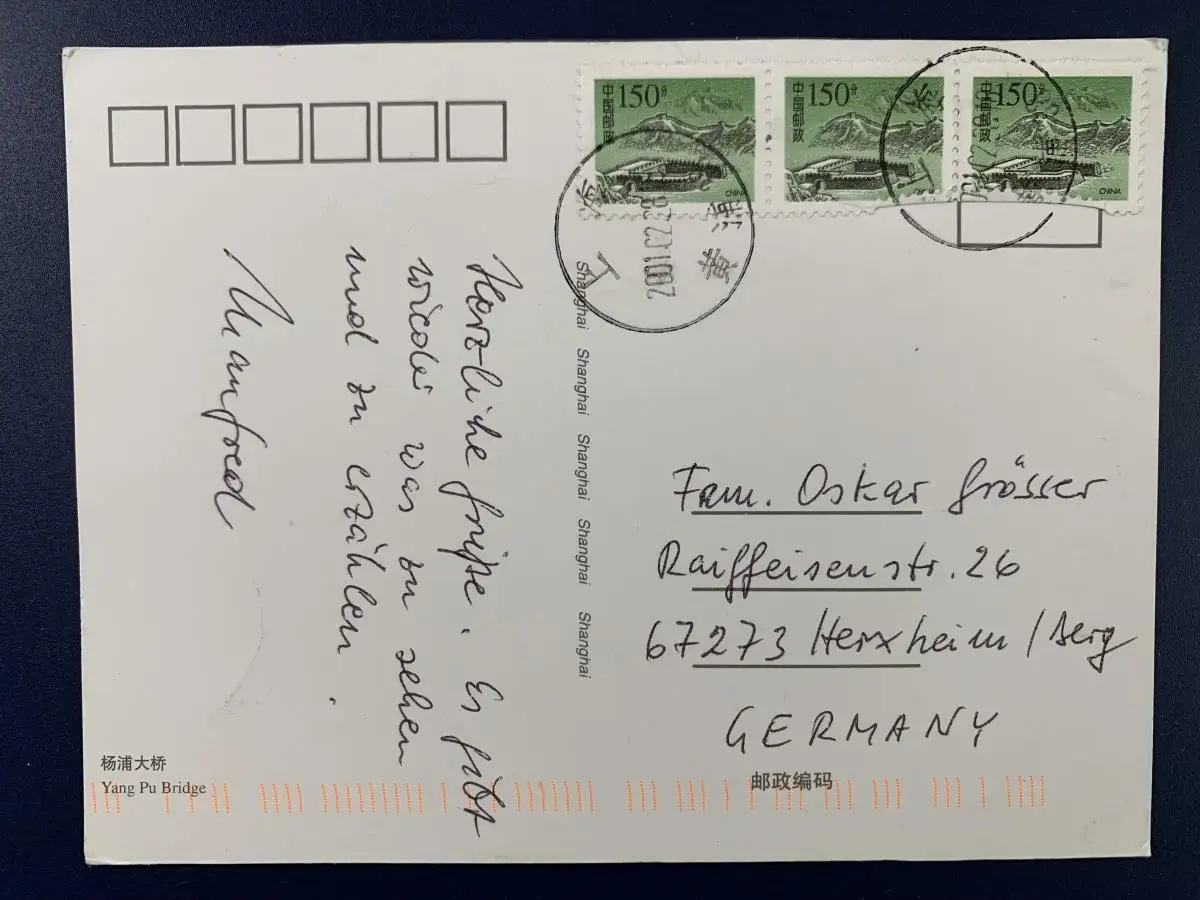 中国邮政 150分 CHINA
中国邮政 150分
中国邮政 150分 CHINA
黄浦
Herzliche Grüße. Es gibt
wieder was zu sehen
und zu erzählen.
Manfred
Shanghai Shanghai Shanghai Shanghai Shanghai
Fam. Oskar Grösser
Raiffeisenstr. 26
67273 Herxheim / Berg
GERMANY
邮政编码
杨浦大桥
Yang Pu Bridge